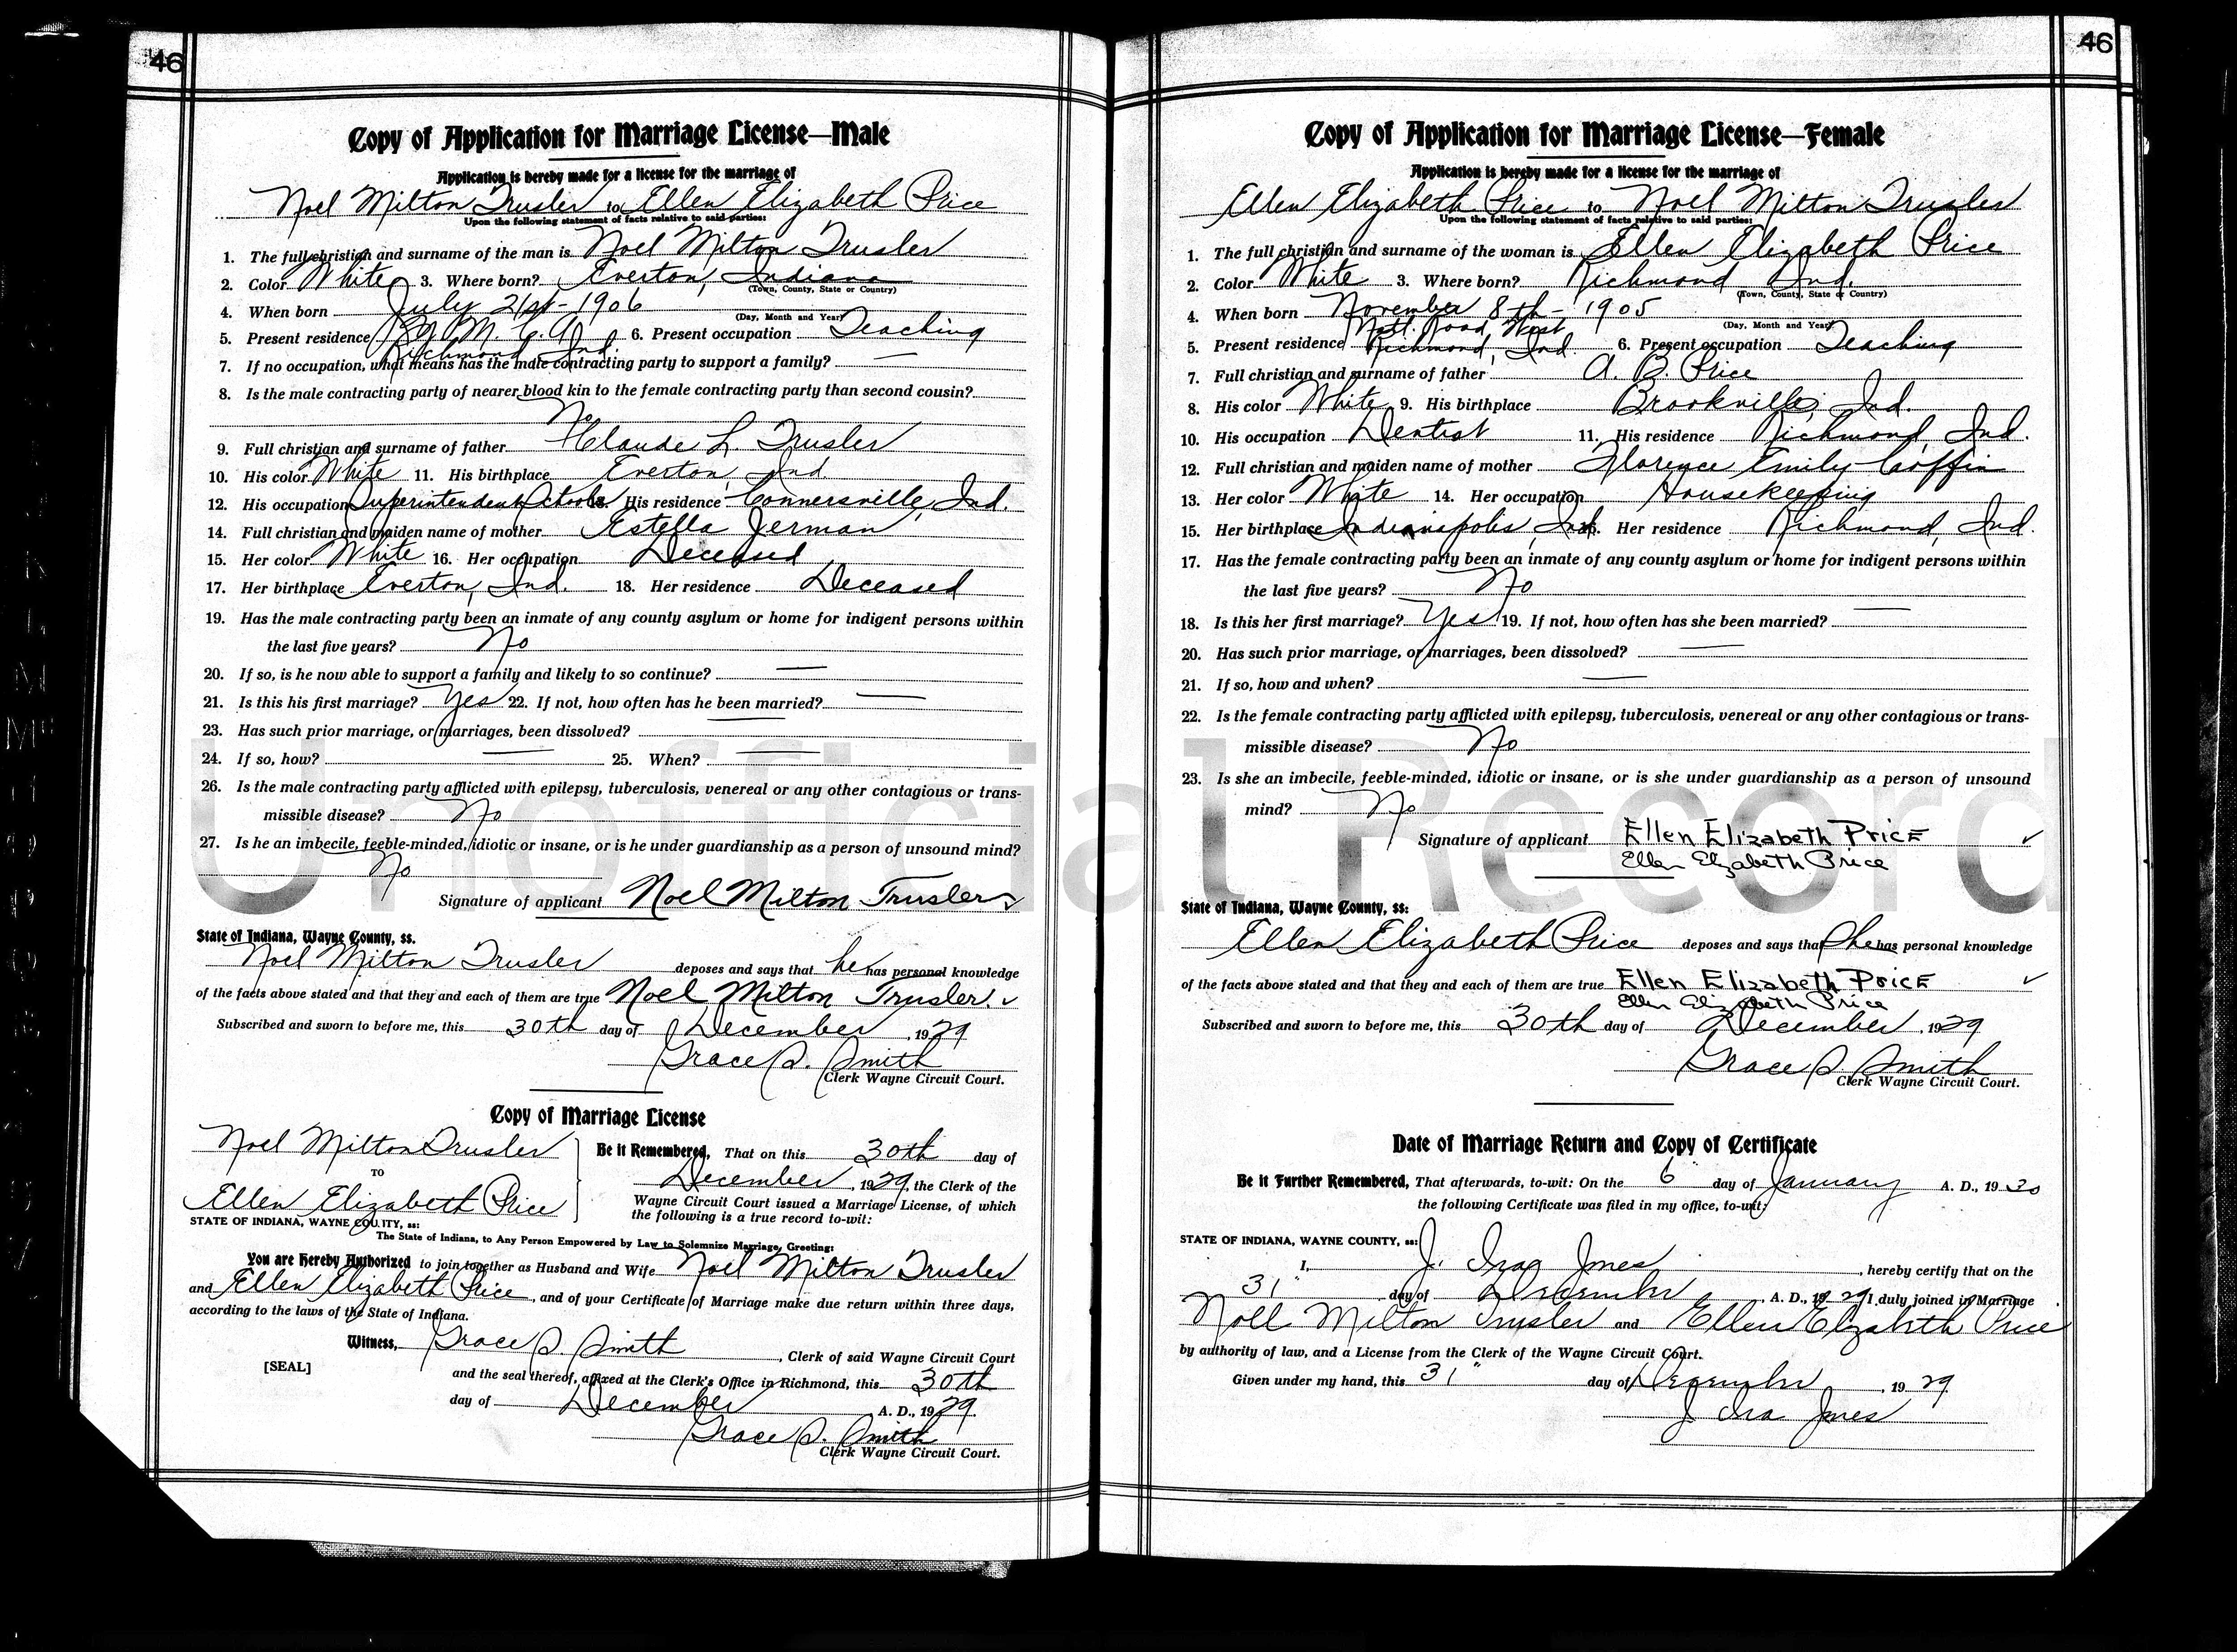 46
Copy of Application for Marriage License—Male
Application is hereby made for a license for the marriage of
Noel Milton Trusler to Ellen Elizabeth Price
Upon the following statement of facts relative to said parties:
1. The full christian and surname of the man is Noel Milton Trusler
2. Color White 3. Where born? Everton, Indiana
(Town, County, State or Country)
4. When born July 21st - 1906
(Day, Month and Year)
5. Present residence Y. M. C. A. Richmond, Ind. 6. Present occupation Teaching
7. If no occupation, what means has the male contracting party to support a family? —
8. Is the male contracting party of nearer blood kin to the female contracting party than second cousin?
No
9. Full christian and surname of father Claude L. Trusler
10. His color White 11. His birthplace Everton, Ind.
12. His occupation Superintendent Schools 13. His residence Connersville, Ind.
14. Full christian and maiden name of mother Estella Jerman
15. Her color White 16. Her occupation Deceased
17. Her birthplace Everton, Ind. 18. Her residence Deceased
19. Has the male contracting party been an inmate of any county asylum or home for indigent persons within
the last five years? No
20. If so, is he now able to support a family and likely to so continue? —
21. Is this his first marriage? Yes 22. If not, how often has he been married? —
23. Has such prior marriage, or marriages, been dissolved? —
24. If so, how? — 25. When? —
26. Is the male contracting party afflicted with epilepsy, tuberculosis, venereal or any other contagious or trans-
missible disease? No
27. Is he an imbecile, feeble-minded, idiotic or insane, or is he under guardianship as a person of unsound mind?
No
Signature of applicant Noel Milton Trusler ✓
State of Indiana, Wayne County, ss.
Noel Milton Trusler deposes and says that he has personal knowledge
of the facts above stated and that they and each of them are true Noel Milton Trusler. ✓
Subscribed and sworn to before me, this 30th day of December, 1929
Grace S. Smith
Clerk Wayne Circuit Court.
Copy of Marriage License
Noel Milton Trusler
TO
Ellen Elizabeth Price
Be it Remembered, That on this 30th day of
December, 1929, the Clerk of the
Wayne Circuit Court issued a Marriage License, of which
the following is a true record to-wit:
STATE OF INDIANA, WAYNE COUNTY, ss:
The State of Indiana, to Any Person Empowered by Law to Solemnize Marriage, Greeting:
You are Hereby Authorized to join together as Husband and Wife Noel Milton Trusler
and Ellen Elizabeth Price, and of your Certificate of Marriage make due return within three days,
according to the laws of the State of Indiana.
Witness, Grace S. Smith, Clerk of said Wayne Circuit Court
[SEAL]
and the seal thereof, affixed at the Clerk's Office in Richmond, this 30th
day of December A. D., 1929.
Grace S. Smith
Clerk Wayne Circuit Court.
46
Copy of Application for Marriage License—Female
Application is hereby made for a license for the marriage of
Ellen Elizabeth Price to Noel Milton Trusler
Upon the following statement of facts relative to said parties:
1. The full christian and surname of the woman is Ellen Elizabeth Price
2. Color White 3. Where born? Richmond Ind.
(Town, County, State or Country)
4. When born November 8th - 1905
(Day, Month and Year)
5. Present residence Natl. Road, West Richmond, Ind. 6. Present occupation Teaching
7. Full christian and surname of father A. B. Price
8. His color White 9. His birthplace Brookville, Ind.
10. His occupation Dentist 11. His residence Richmond, Ind.
12. Full christian and maiden name of mother Florence Emily Coffin
13. Her color White 14. Her occupation Housekeeping
15. Her birthplace Indianapolis, Ind. 16. Her residence Richmond, Ind.
17. Has the female contracting party been an inmate of any county asylum or home for indigent persons within
the last five years? No
18. Is this her first marriage? Yes 19. If not, how often has she been married? —
20. Has such prior marriage, or marriages, been dissolved? —
21. If so, how and when? —
22. Is the female contracting party afflicted with epilepsy, tuberculosis, venereal or any other contagious or trans-
missible disease? No
23. Is she an imbecile, feeble-minded, idiotic or insane, or is she under guardianship as a person of unsound
mind? No
Signature of applicant Ellen Elizabeth Price ✓
Ellen Elizabeth Price
State of Indiana, Wayne County, ss:
Ellen Elizabeth Price deposes and says that she has personal knowledge
of the facts above stated and that they and each of them are true Ellen Elizabeth Price ✓
Ellen Elizabeth Price
Subscribed and sworn to before me, this 30th day of December, 1929
Grace S. Smith
Clerk Wayne Circuit Court.
Date of Marriage Return and Copy of Certificate
Be it Further Remembered, That afterwards, to-wit: On the 6" day of January A. D., 1930
the following Certificate was filed in my office, to-wit:
STATE OF INDIANA, WAYNE COUNTY, ss:
I, J. Ira Jones, hereby certify that on the
31" day of December, A. D., 1929, I duly joined in Marriage
Noell Milton Trusler and Ellen Elizabeth Price
by authority of law, and a License from the Clerk of the Wayne Circuit Court.
Given under my hand, this 31" day of December, 1929.
J Ira Jones
Unofficial Record